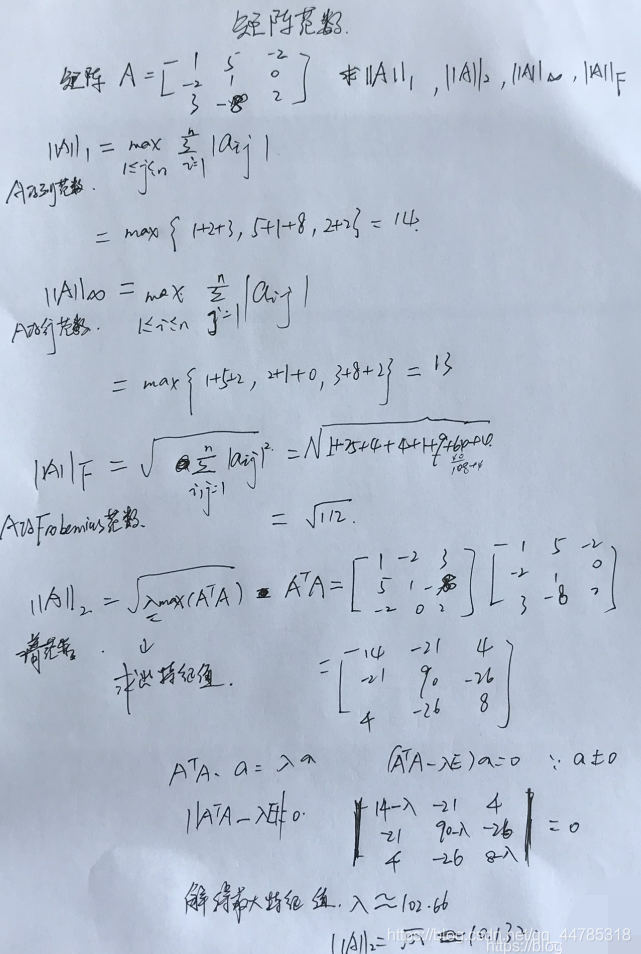 矩阵范数.
矩阵 A = [ 1 5 -2
-2 1 0
3 -8 2 ] 求 ||A||₁ , ||A||₂ , ||A||∞ , ||A||F
||A||₁ = max Σ |aij|
1≤j≤n i=1 n
A的列范数.
= max { 1+2+3, 5+1+8, 2+2 } = 14.
||A||∞ = max Σ |aij|
1≤i≤n j=1 n
A的行范数.
= max { 1+5+2, 2+1+0, 3+8+2 } = 13
||A||F = √ Σ |aij|² = √ 1+25+4+4+1+9+64+4
i,j=1 n
A的Frobenius范数. = √112.
||A||₂ = √ λmax(AᵀA) AᵀA = [ 1 -2 3
5 1 -8
-2 0 2 ] [ 1 5 -2
-2 1 0
3 -8 2 ]
↓
求出特征值. = [ 14 -21 4
-21 90 -26
4 -26 8 ]
AᵀA · a = λa (AᵀA-λE)a=0 ∵ a≠0
||AᵀA-λE|=0. | 14-λ -21 4
-21 90-λ -26
4 -26 8-λ | = 0
解得最大特征值. λ≈102.66
||A||₂ = √λ = 10.13
https://blog.csdn.net/qq_44785318
https://blog